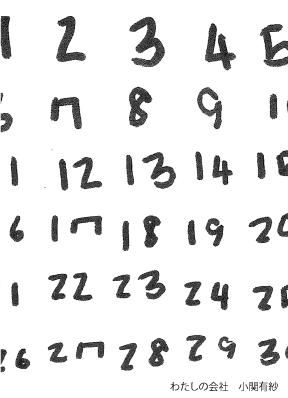 1 2 3 4 5
6 7 8 9 1
1 12 13 14 15
6 17 18 19 20
1 22 23 24 25
26 27 28 29 30
わたしの会社 小関有紗